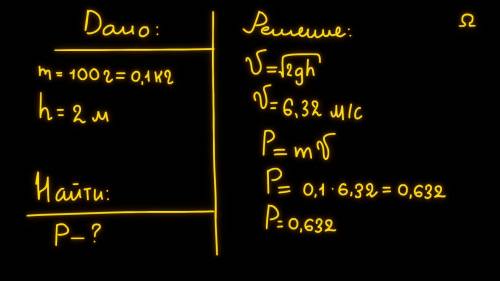 Дано:
m = 100 г = 0,1 кг
h = 2 м
Найти:
P – ?
Решение:
Ω
V = √2gh
V = 6,32 м/с
P = mV
P = 0,1 · 6,32 = 0,632
P = 0,632